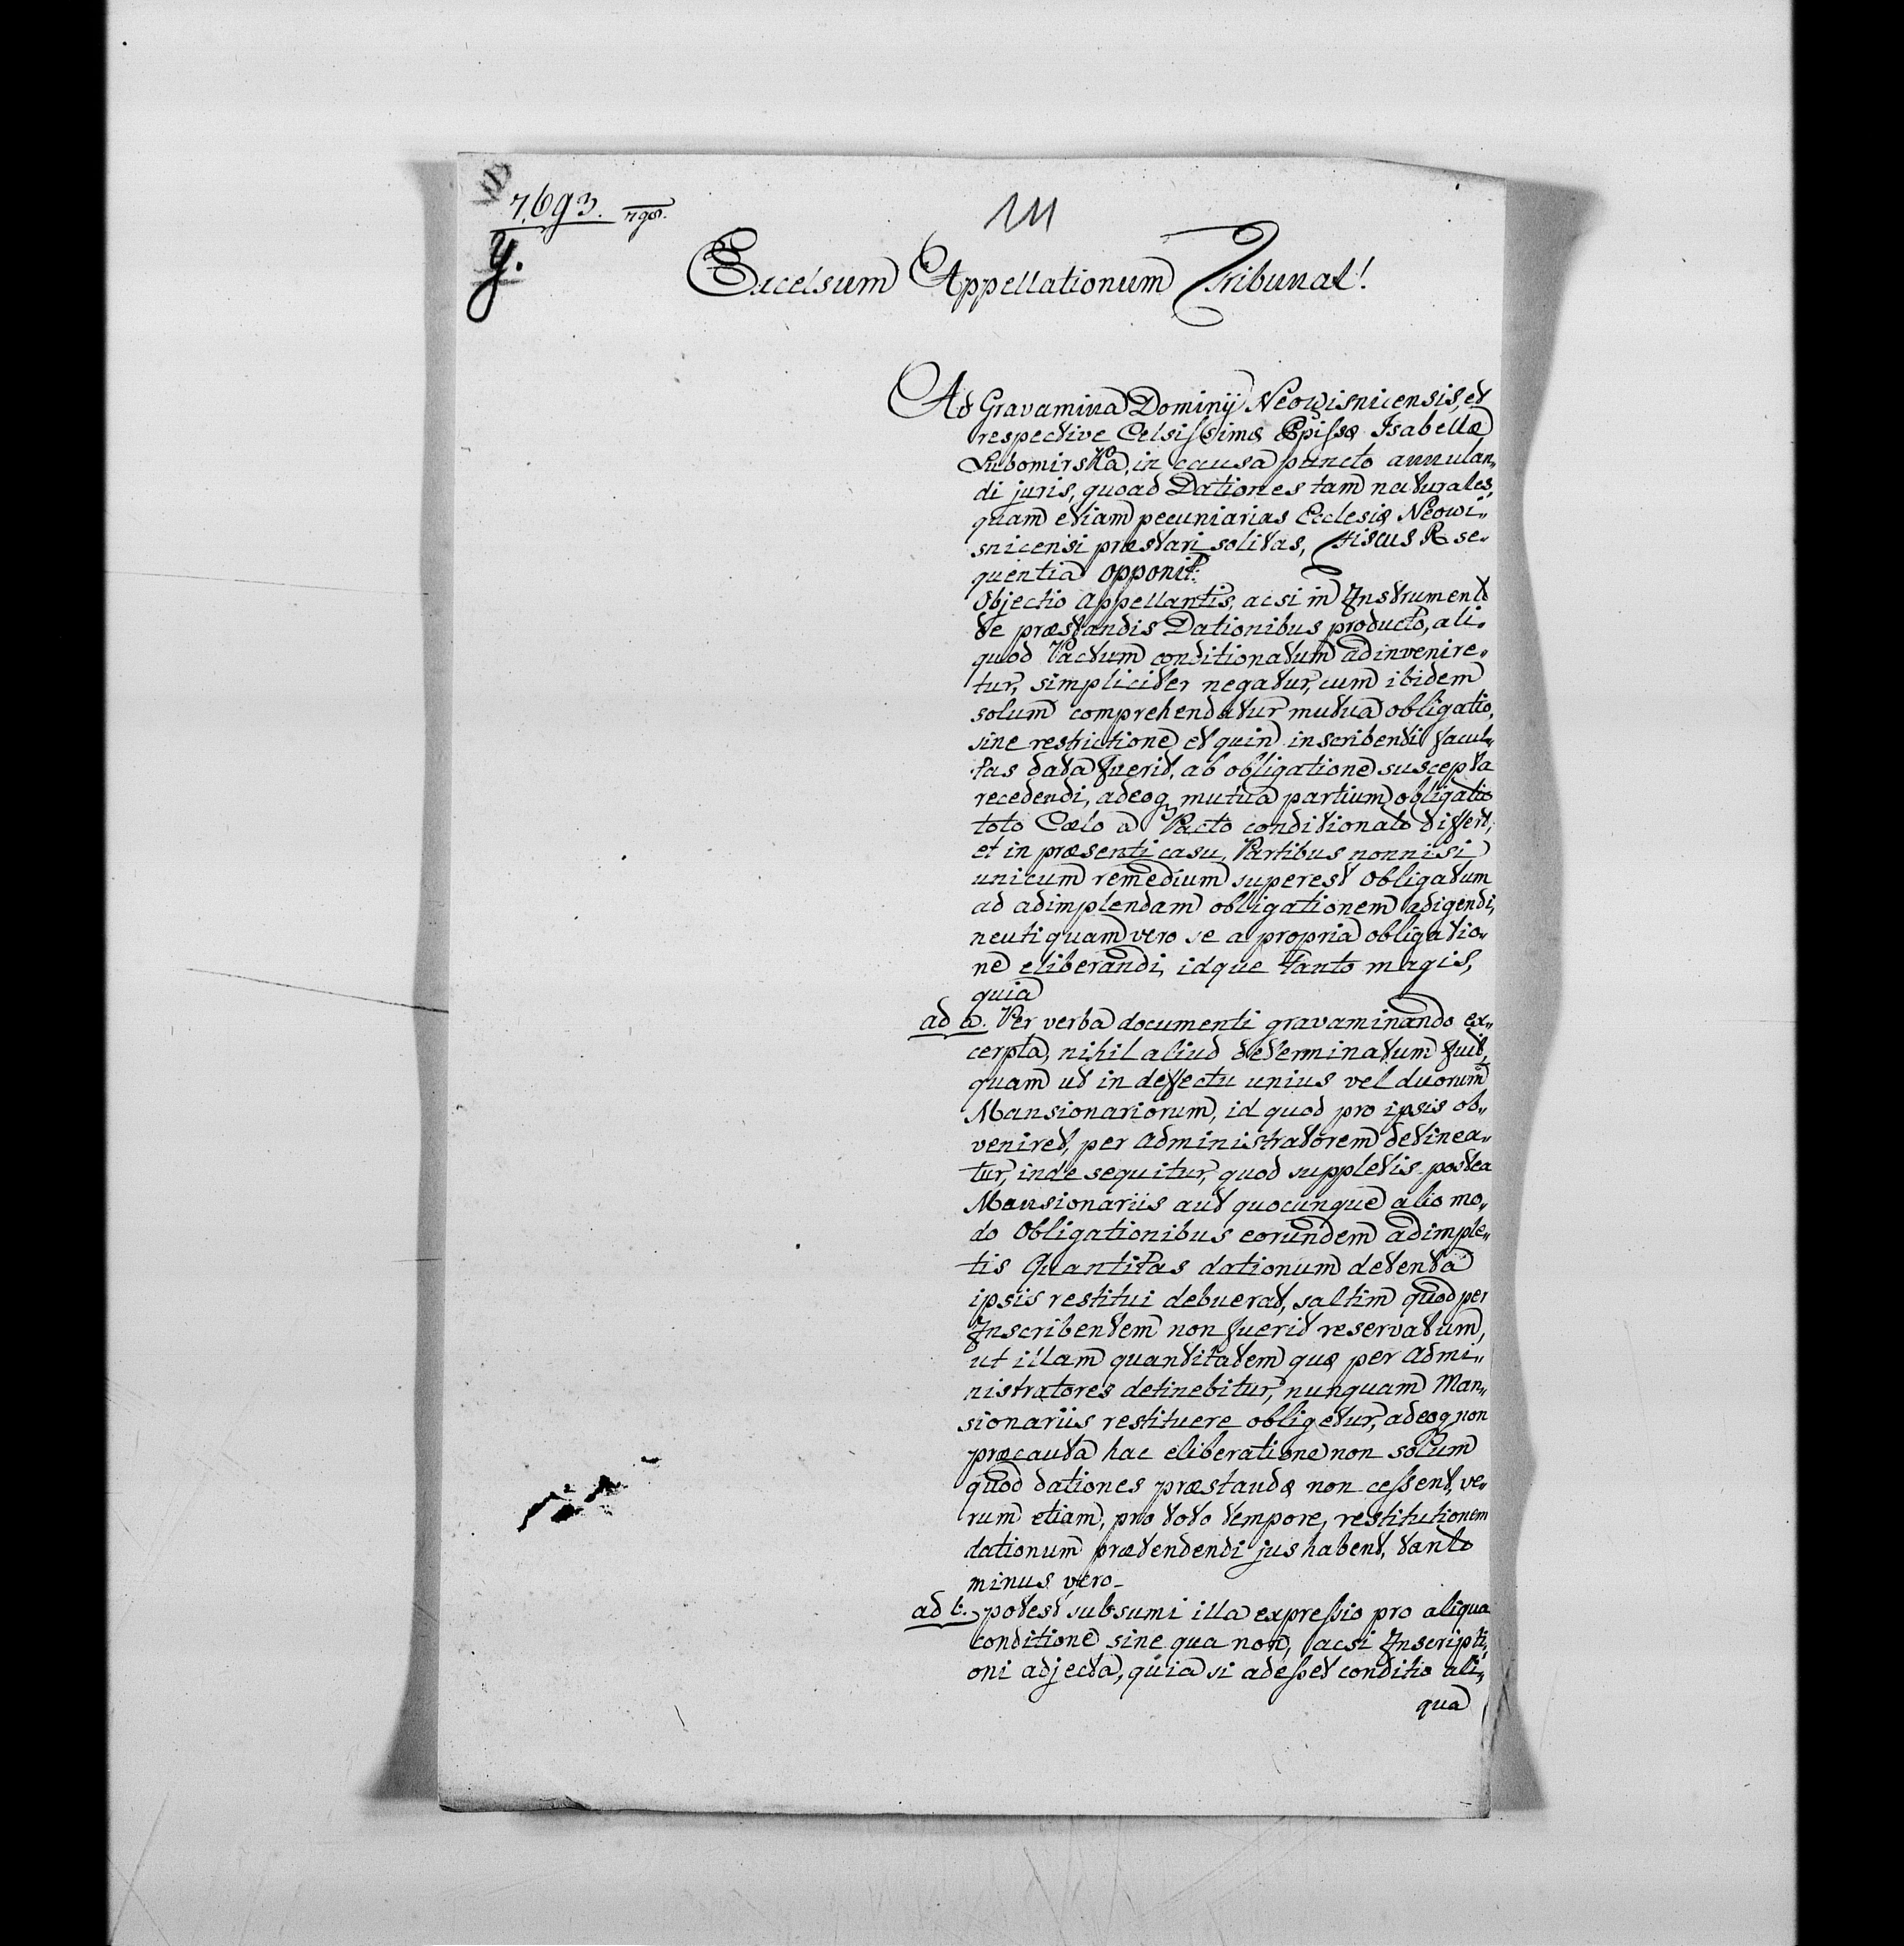 7,693. 798.
y.
Excelsum Appellationum Tribunal!
Ad Gravamina Dominij Neowisnicensis, et
respective Celsissimæ Ppissæ Isabellæ
Lubomirska, in causa puncto annulan„
di juris, quoad Dationes tam naturales,
quam etiam pecuniarias Ecclesiæ Neowi„
snicensi præstari solitas, Fiscus R. se„
quentia opponit:
Objectio Appellantis, acsi in Instrumento
de præstandis Dationibus producto, ali„
quod Pactum conditionatum adinvenire„
tur, simpliciter negatur, cum ibidem
solum comprehendatur mutua obligatio,
sine restrictione, et quin inscribenti facul„
tas data fuerit, ab obligatione suscepta
recedendi, adeoq mutua partium obligatio
toto Cœlo a Pacto conditionato differt,
et in præsenti casu, Partibus nonnisi
unicum remedium superest Obligatum
ad adimplendam obligationem adigendi,
neutiquam vero se a propria obligatio„
ne eliberandi, idque tanto magis,
quia
ad a. Per verba documenti gravaminando ex„
cerpta, nihil aliud determinatum fuit,
quam ut in deffectu unius vel duorum
Mansionariorum, id quod pro ipsis ob„
veniret, per Administratorem detinea„
tur, inde sequitur, quod suppletis postea
Mansionariis aut quocunque alio mo„
do Obligationibus eorundem adimple„
tis Quantitas dationum detenta
ipsis restitui debuerat, saltim quod per
Inscribentem non fuerit reservatum,
ut illam quantitatem quæ per Admi„
nistratores detinebitur, nunquam Man„
sionariis restituere obligetur, adeoq non
præcauta hac eliberatione non solum
quod dationes præstandæ non cessent, ve„
rum etiam, pro toto tempore, restitutionem
dationum prætendendi jus habent, tanto
minus vero
ad b. potest subsumi illa expressio pro aliqua
conditione sine qua non, acsi Inscripti„
oni adjecta, quia si adesset conditio ali„
qua